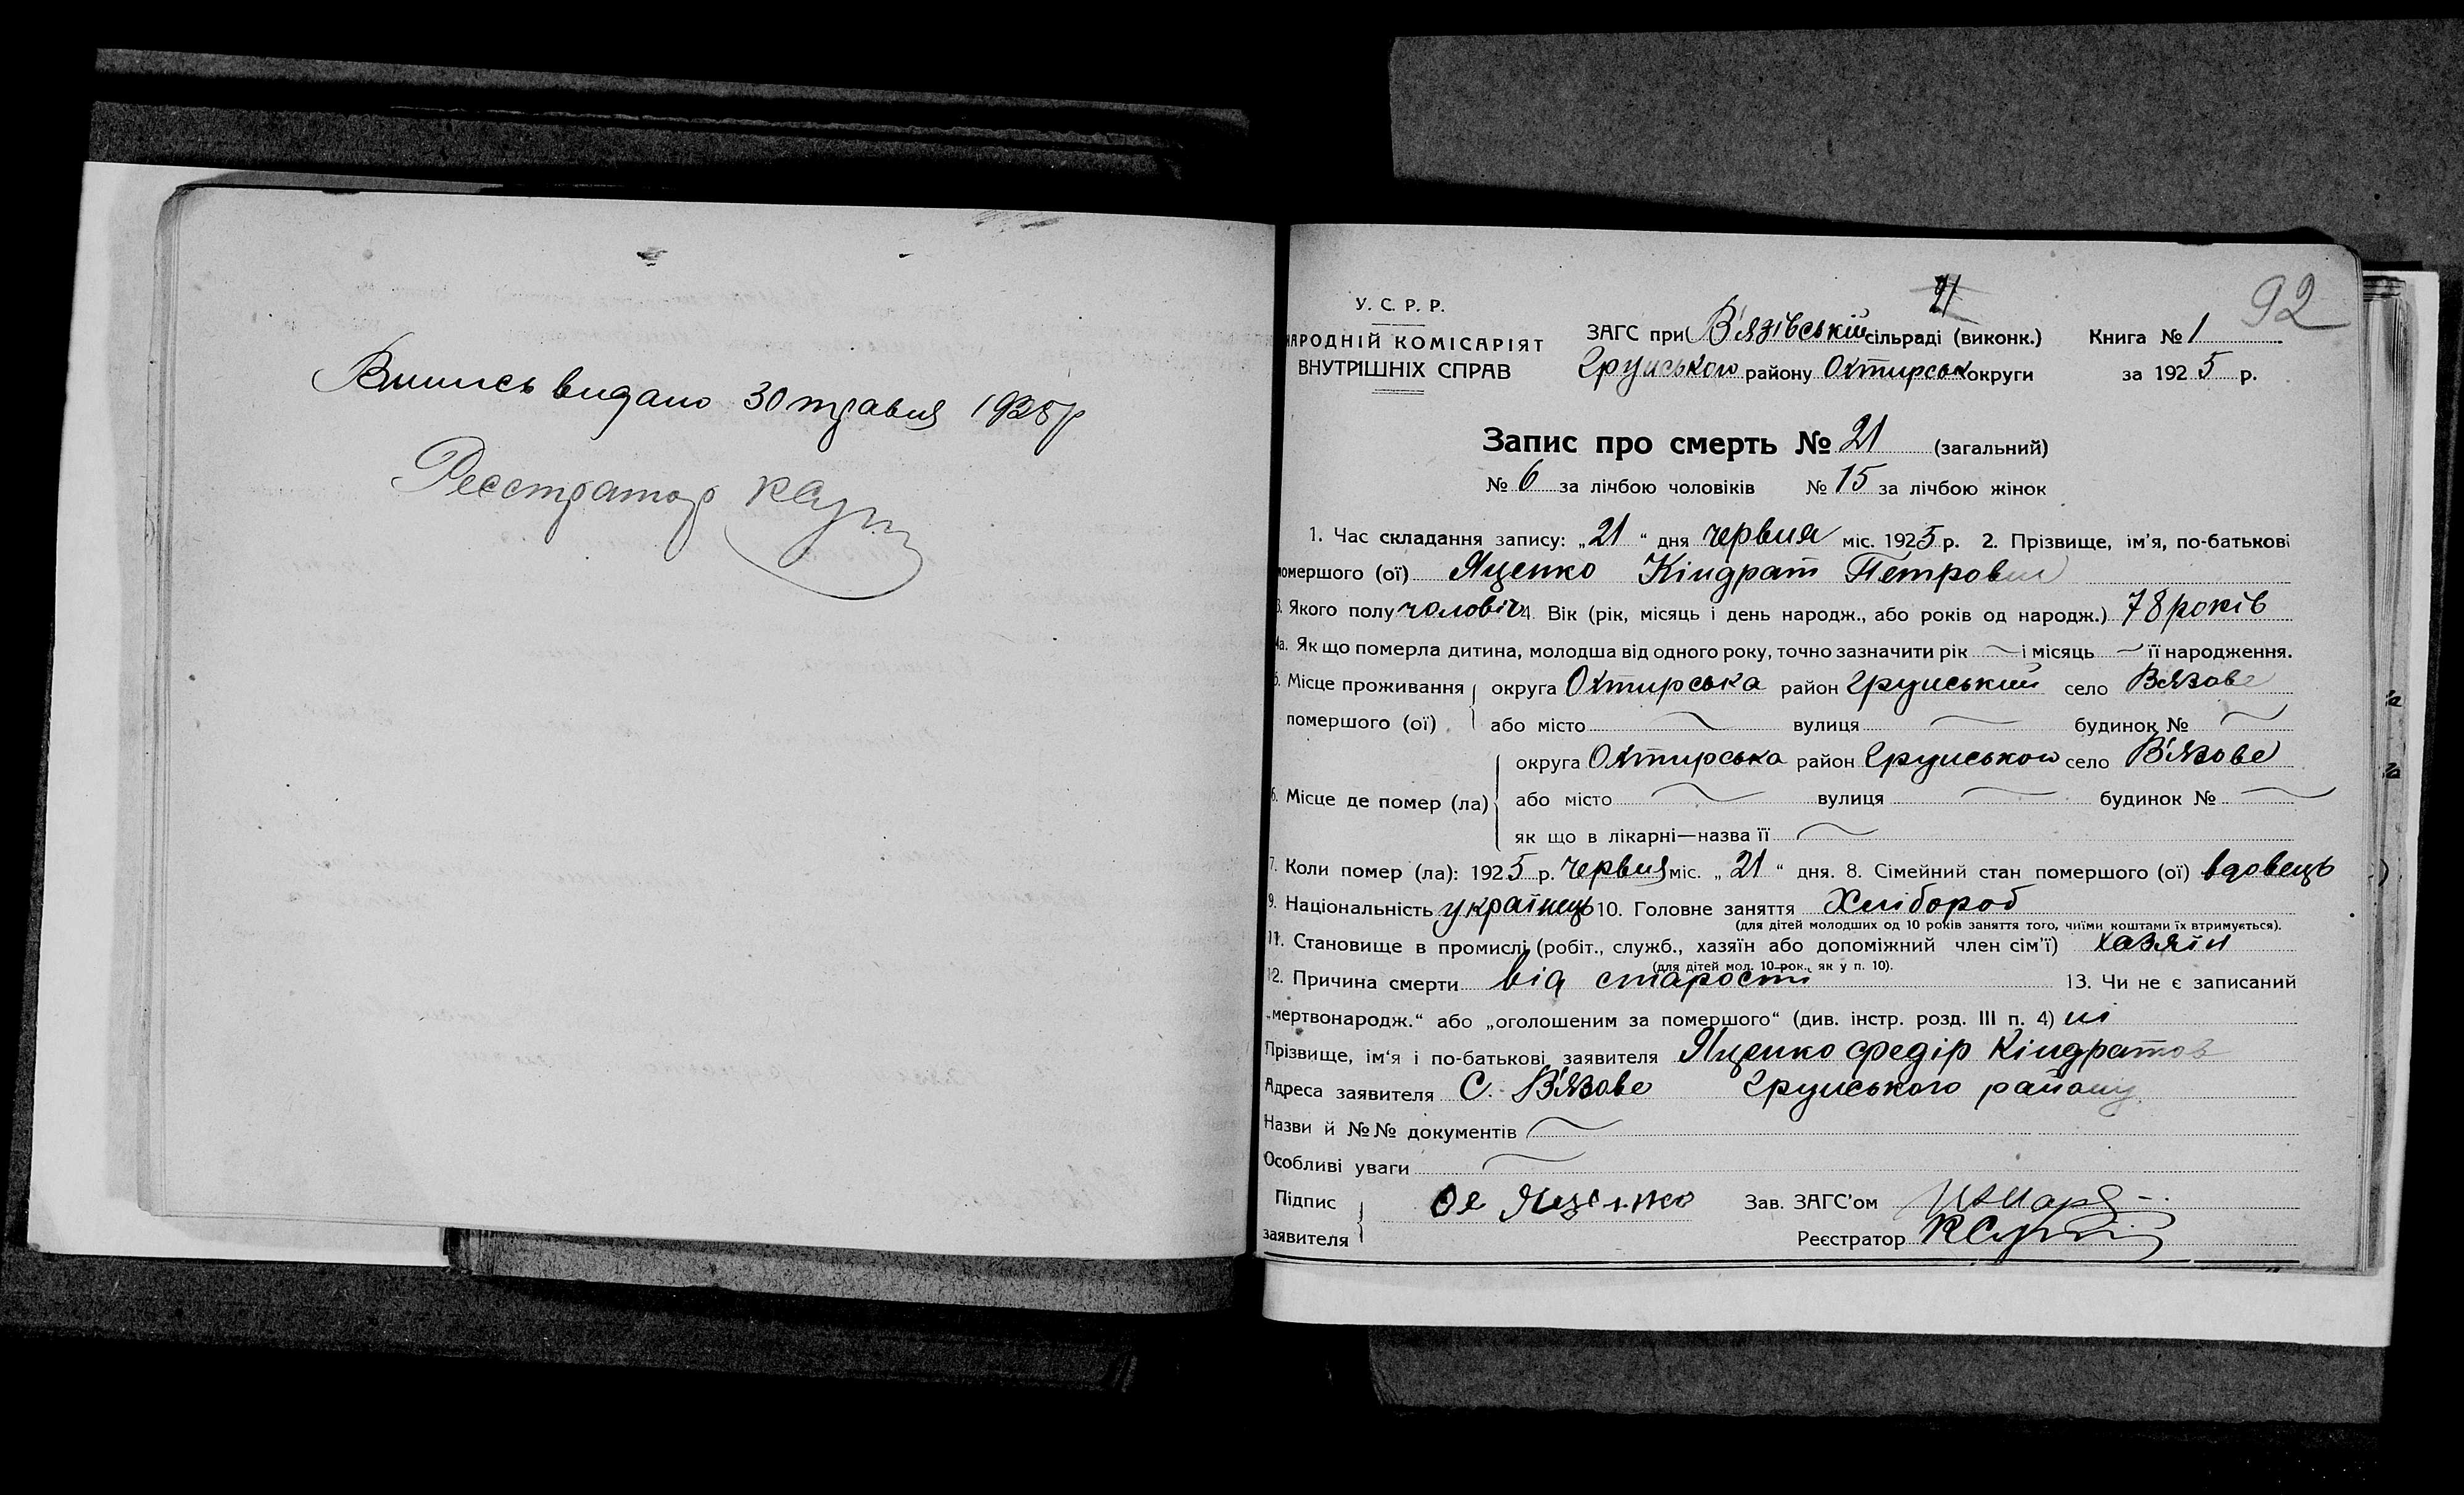 Випись видано 30 травня 1928 р
Реєстратор
21
92
У. С. Р. Р.
НАРОДНІЙ КОМІСАРІЯТ
ВНУТРІШНІХ СПРАВ
ЗАГС при В'язівській сільраді (виконк.) Книга № 1
Грунського району Охтирськ округи за 1925 р.
Запис про смерть № 21 (загальний)
№ 6 за лічбою чоловіків № 15 за лічбою жінок
1. Час складання запису: „21“ дня червня міс. 1925 р. 2. Прізвище, ім'я, по-батькові
помершого (ої) Яценко Кіндрат Петрович
3. Якого полу чоловіч 4. Вік (рік, місяць і день народж., або років од народж.) 78 років
4а. Як що померла дитина, молодша від одного року, точно зазначити рік і місяць її народження.
5. Місце проживання округа Охтирська район Грунський село Вязове
помершого (ої) або місто вулиця будинок №
округа Охтирська район Грунського село В'язове
6. Місце де помер (ла) або місто вулиця будинок №
як що в лікарні—назва її
7. Коли помер (ла): 1925 р. червня міс. „21“ дня. 8. Сімейний стан помершого (ої) вдовець
9. Національність українець 10. Головне заняття Хлібороб
(для дітей молодших од 10 років заняття того, чиїми коштами їх втримується).
11. Становище в промислі (робіт., служб., хазяїн або допоміжний член сім'ї) хазяїн
(для дітей мол. 10 рок., як у п. 10).
12. Причина смерти від старости 13. Чи не є записаний
„мертвонародж.“ або „оголошеним за помершого“ (див. інстр. розд. III п. 4) ні
Прізвище, ім'я і по-батькові заявителя Яценко Федір Кіндратов
Адреса заявителя С. В'язове Грунського району
Назви й №№ документів
Особливі уваги
Підпис Яценко Зав. ЗАГС'ом
заявителя Реєстратор